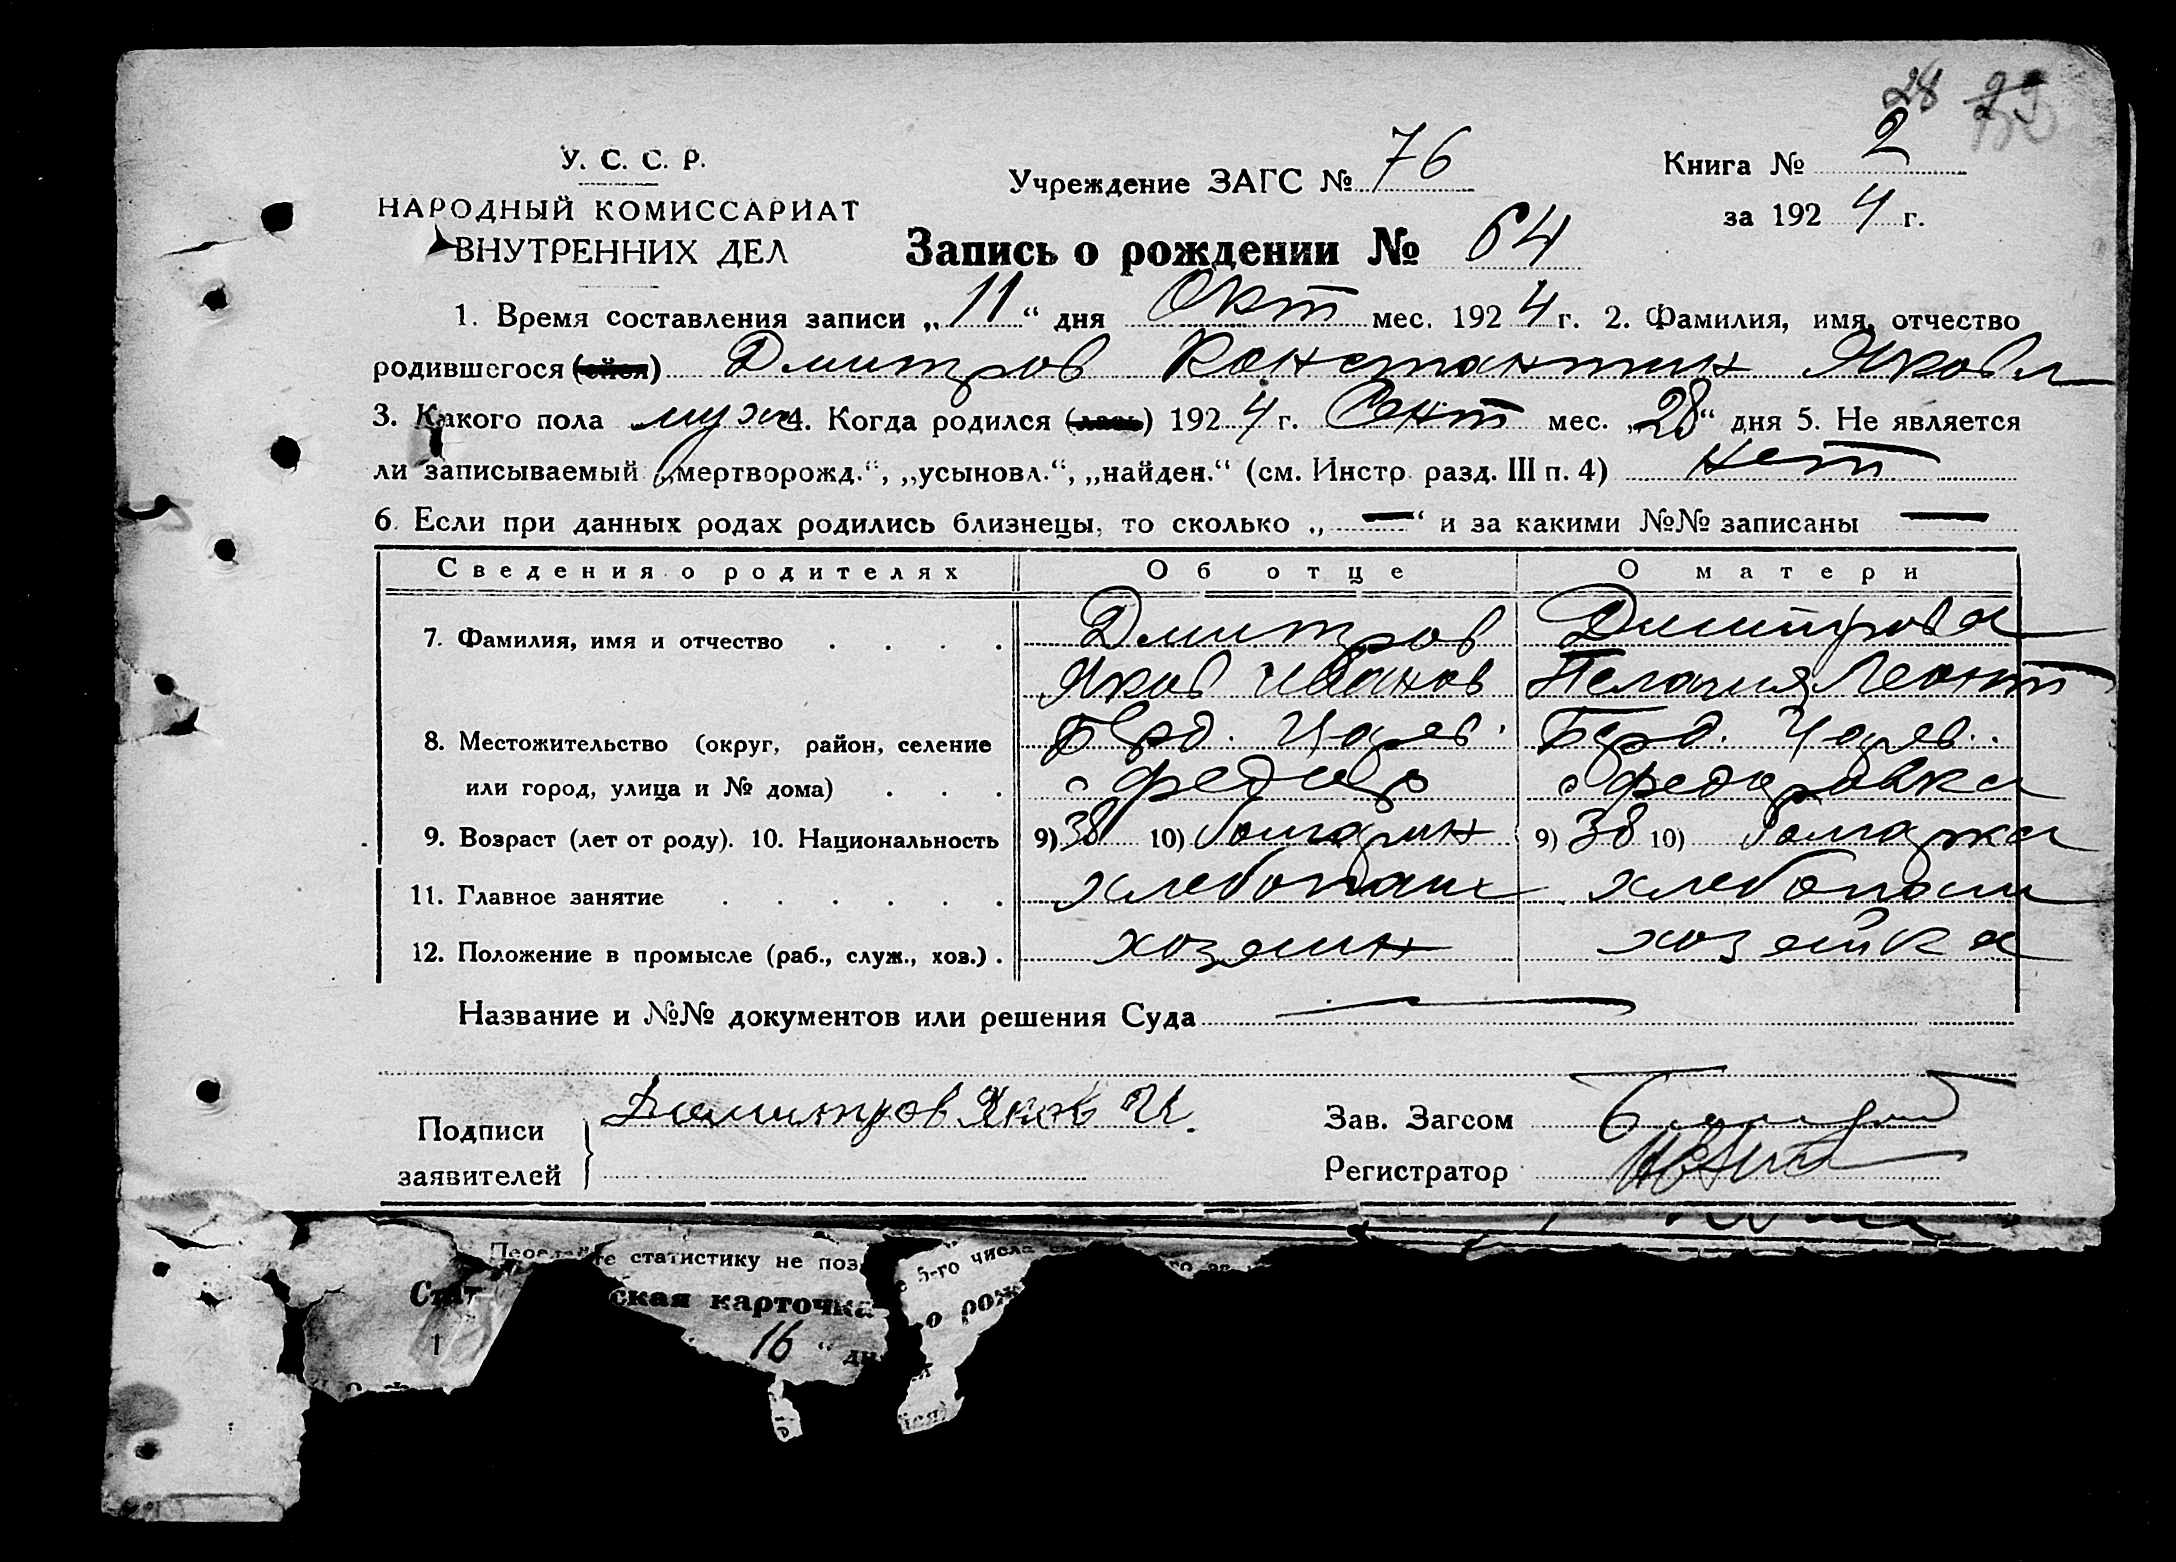 28 29
У. С. С. Р.
НАРОДНЫЙ КОМИССАРИАТ
ВНУТРЕННИХ ДЕЛ
Учреждение ЗАГС № 76
Книга № 2
за 1924 г.
Запись о рождении № 64
1. Время составления записи „11“ дня Окт мес. 1924 г. 2. Фамилия, имя, отчество
родившегося (ейся) Дмитров Константин Яковл
3. Какого пола муж 4. Когда родился (лась) 1924 г. Сент мес. „28“ дня 5. Не является
ли записываемый „мертворожд.“, „усыновл.“, „найден.“ (см. Инстр. разд. III п. 4) Нет
6. Если при данных родах родились близнецы, то сколько „—“ и за какими №№ записаны —
Сведения о родителях Об отце О матери
7. Фамилия, имя и отчество . . . . Дмитров Димитрова
Яков Иванов Пелагия Леонт
8. Местожительство (округ, район, селение Берд. Царев. Берд. Царев.
или город, улица и № дома) . . . с Федор с Федоровка
9. Возраст (лет от роду). 10. Национальность 9) 38 10) болгарин 9) 38 10) болгарка
11. Главное занятие . . . . . . хлебопаш хлебопаш
12. Положение в промысле (раб., служ., хоз.) . хозяин хозяйка
Название и №№ документов или решения Суда —
Подписи
заявителей
Димитров Яков И.
Зав. Загсом
Регистратор
статистику не поз
е 5-го числа
Стат ская карточка
о рож
1 16 “ дн